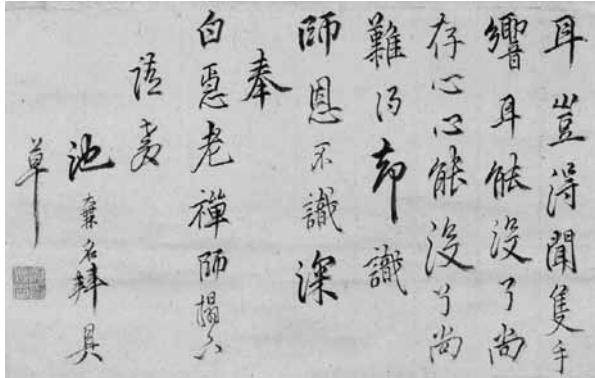 耳豈得聞隻手
響耳能没了尚
存心心能没了尚
難得却識
師恩不識深
奉
白㥯老禪師榻下
請教
池無名拜具
草